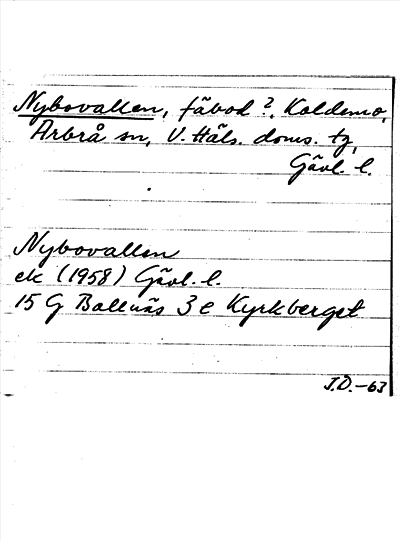 Nybovallen, fäbod ?, Koldemo,
Arbrå sn, V. Häls. doms. tg,
Gävl. l.
Nybovallen
ek (1958) Gävl. l.
15 G Bollnäs 3 e Kyrkberget
J.D.-63